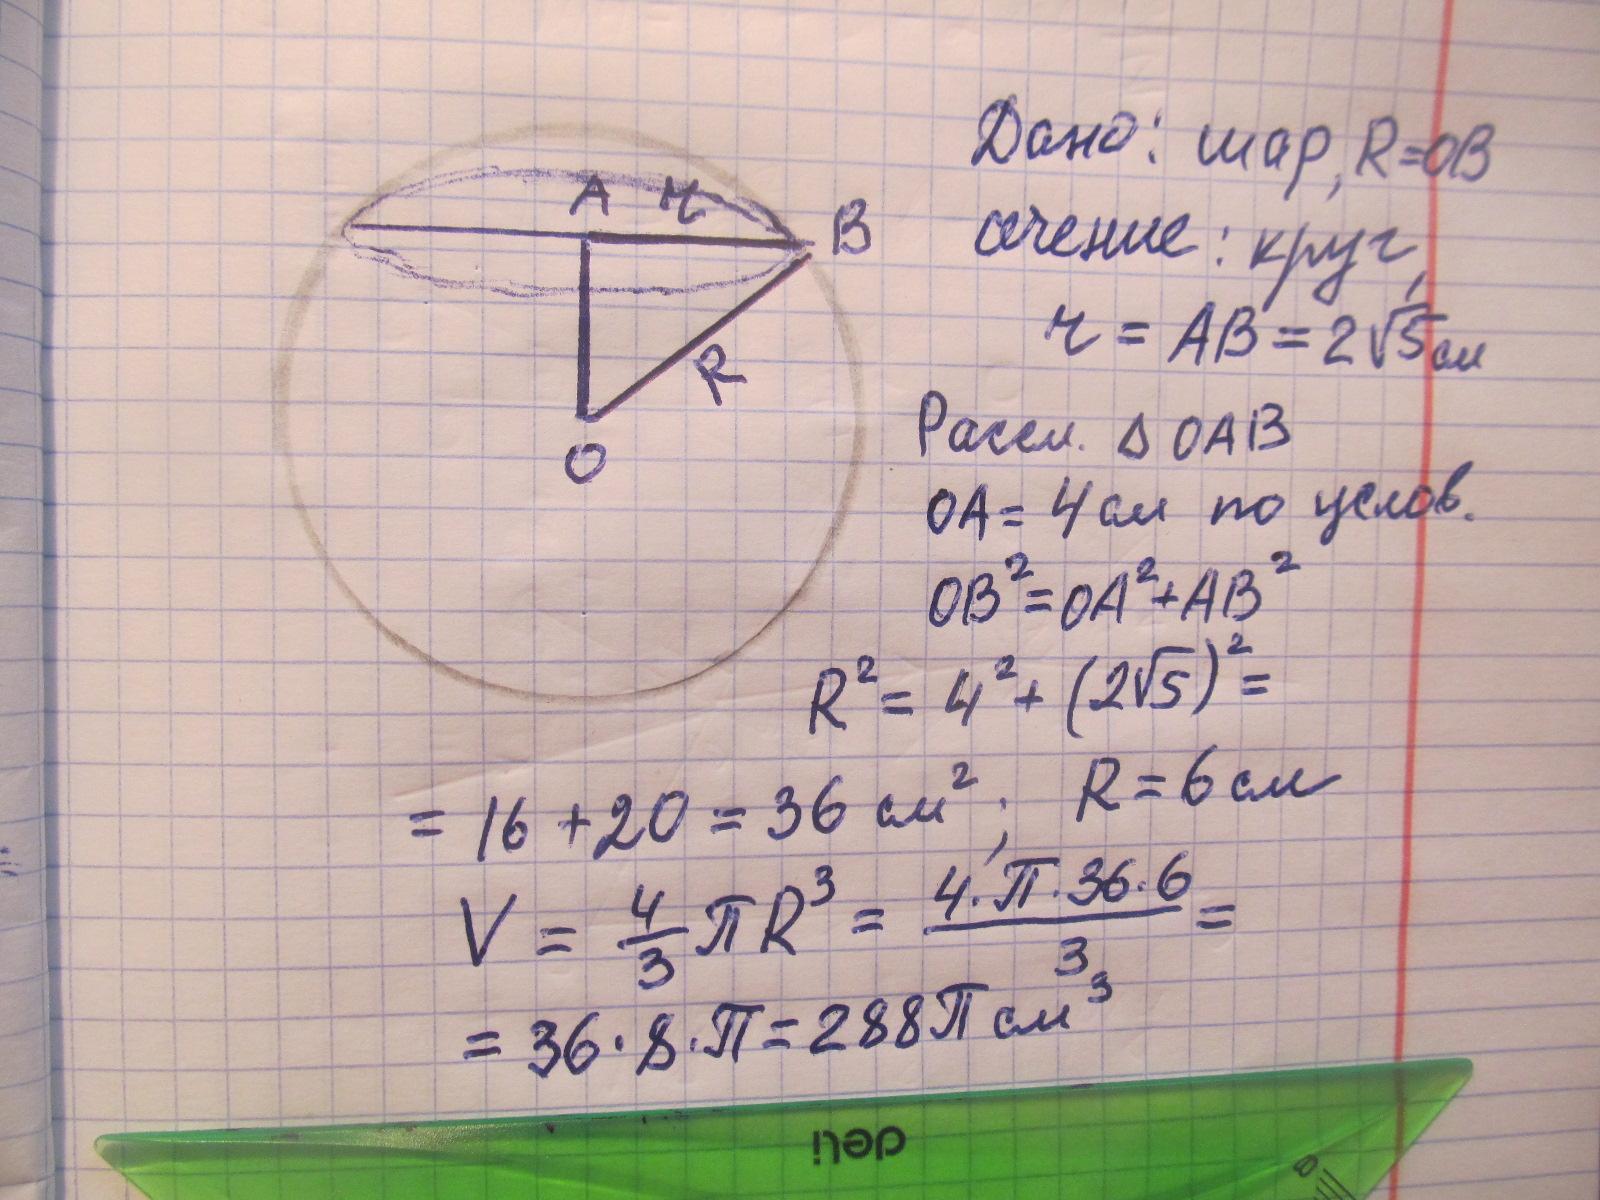 A r B
R
O
Дано: шар, R=OB
сечение: круг,
r = AB = 2√5 см
Рассм. Δ OAB
OA = 4 см по услов.
OB² = OA² + AB²
R² = 4² + (2√5)² =
= 16 + 20 = 36 см² ; R = 6 см
V = 4/3 πR³ = 4·π·36·6/3 =
= 36·8·π = 288π см³
deli
8